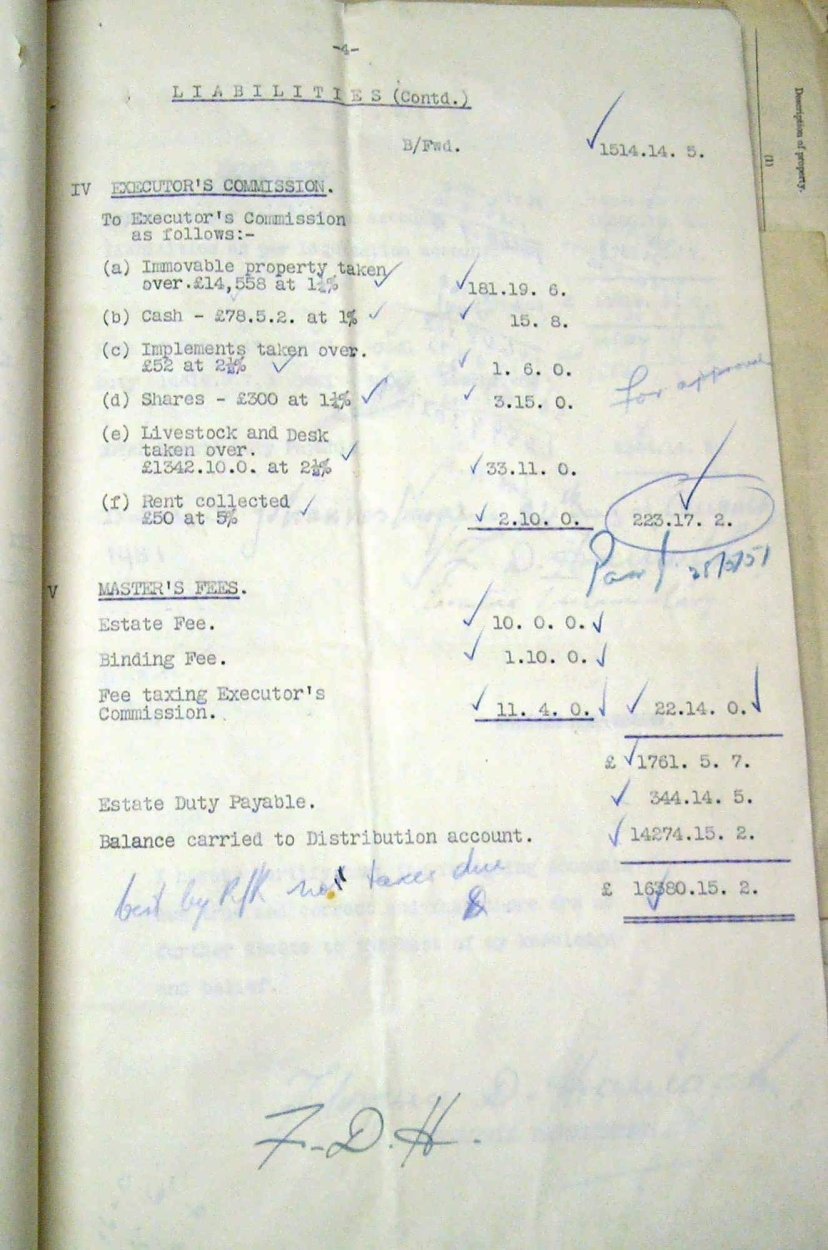 -4-
LIABILITIES (Contd.)
B/Fwd. 1514.14. 5.
IV EXECUTOR'S COMMISSION.
To Executor's Commission
as follows:-
(a) Immovable property taken
over.£14,558 at 1¼% 181.19. 6.
(b) Cash - £78.5.2. at 1% 15. 8.
(c) Implements taken over.
£52 at 2½% 1. 6. 0.
(d) Shares - £300 at 1¼% 3.15. 0.
for approval
(e) Livestock and Desk
taken over.
£1342.10.0. at 2½% 33.11. 0.
(f) Rent collected
£50 at 5% 2.10. 0. 223.17. 2.
V MASTER'S FEES.
Estate Fee. 10. 0. 0.
Binding Fee. 1.10. 0.
Fee taxing Executor's
Commission. 11. 4. 0. 22.14. 0.
£ 1761. 5. 7.
Estate Duty Payable. 344.14. 5.
Balance carried to Distribution account. 14274.15. 2.
£ 16380.15. 2.
taxes due
F.D.H.
Description of property.
(1)